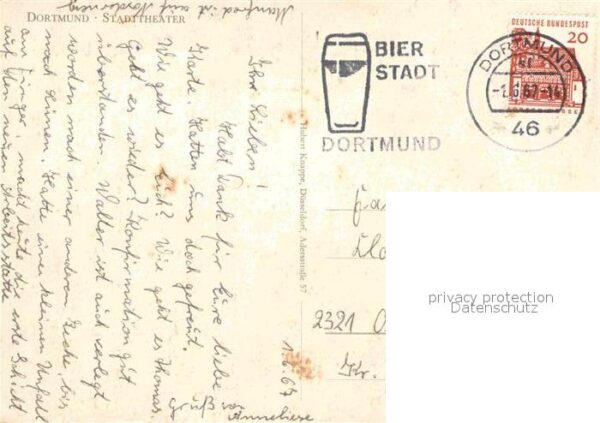 Manfred ist auf Norderney
DORTMUND · STADTTHEATER
Ihr Lieben!
Habt Dank für Eure liebe
Karte. Hatten uns doch gefreut.
Wie geht es Euch? Wie geht es Thomas.
Geht es wieder? Konfirmation gut
überstanden. Walter ist auch verlegt
worden nach einer anderen Zeche, bis
nach Lünen. Hatte einen kleinen Unfall
am Finger, macht heute die erste Schicht
auf der neuen Arbeitsstätte
Gruß von
Anneliese
1.6.67
Hubert Knappe, Düsseldorf, Adersstraße 57
BIER
STADT
DORTMUND
DORTMUND
-1.6.67-14
46
DEUTSCHE BUNDESPOST
20
2321
Kr.
privacy protection
Datenschutz